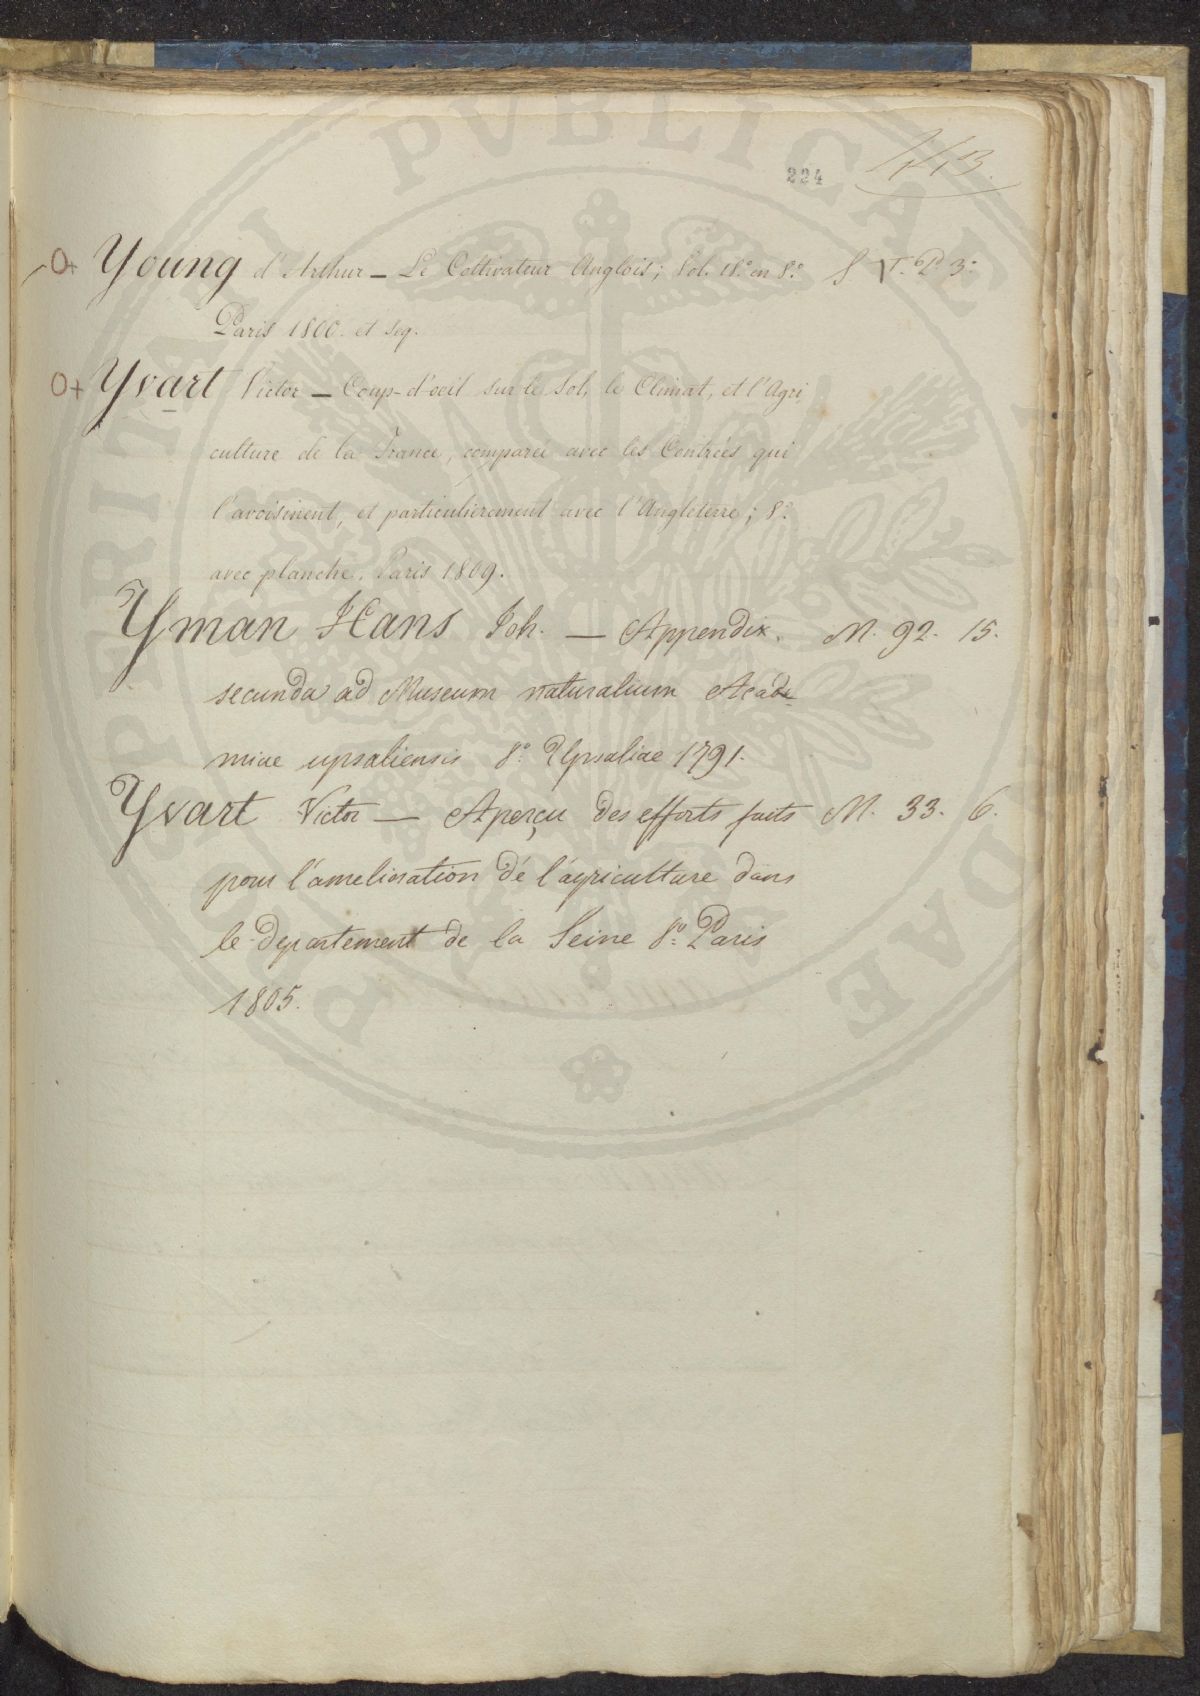 224
Young d'Arthur — Le Coltivateur Anglois; Vol. 18.º en 8.º S T.º 6 P.º 3.º
Paris 1800. et seq.
Yvart Victor — Coup-d'oeil sur le Sol, le Climat, et l'Agri
culture de la France, comparée avec les Contrées qui
l'avoisinent, et particulierement avec l'Angleterre; 8.º
avec planche. Paris 1809.
Yman Hans Joh. — Appendix. M. 92. 15.
secunda ad Museum naturalium Acade
miae upsaliensis 8.º Upsaliae 1791.
Yvart Victor — Aperçu des efforts faits M. 33. 6.
pour l'amelioration de l'agriculture dans
le departement de la Seine 8.º Paris
1805.
PROSPERITATI PVBLICAE AVGENDAE